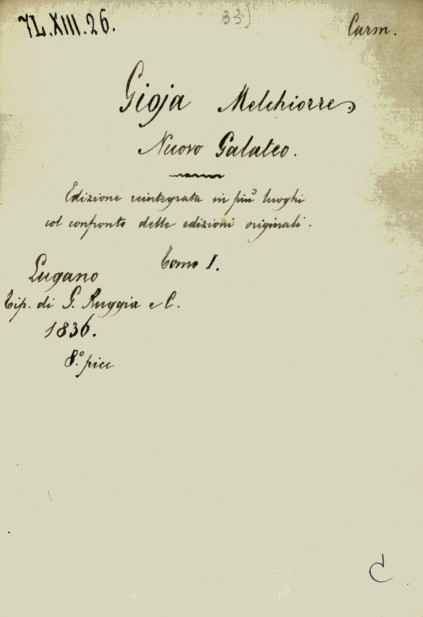 7L.XIII.26.
33)
Carm.
Gioja Melchiorre
Nuovo Galateo.
Edizione reintegrata in più luoghi
col confronto delle edizioni originali.
Tomo I.
Lugano
Tip. di G. Ruggia e C.
1836.
8.° picc
C